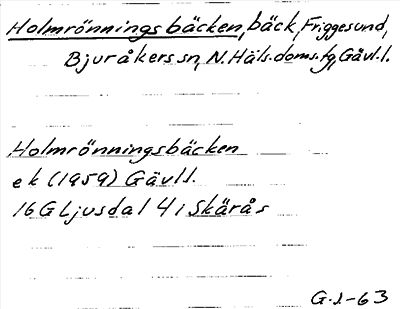 Holmrönningsbäcken, bäck, Friggesund,
Bjuråkers sn, N. Häls. doms. fg, Gävl. l.
Holmrönningsbäcken
e k (1959) Gävl l.
16 G Ljusdal 4 i Skärås
G.J-63